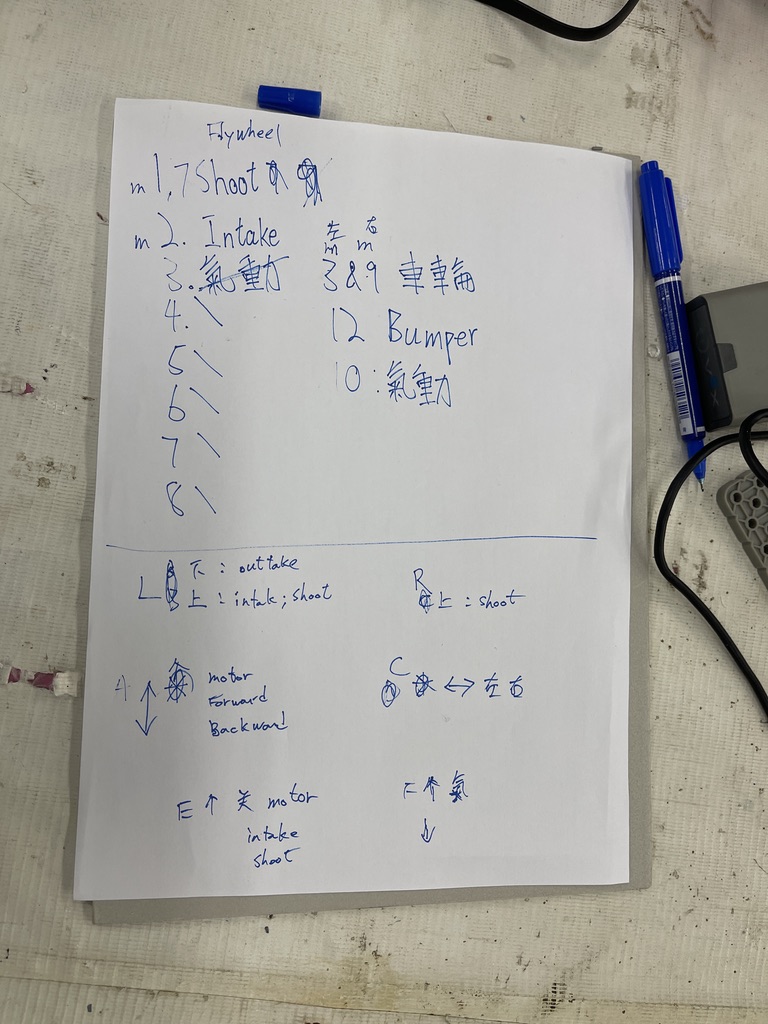 Flywheel
m 1,7 Shoot
m 2. Intake
3. 氣動
4. \
5 \
6 \
7 \
8 \
左 右
m m
3&9 車輪
12 Bumper
10:氣動
L 下:outtake
上:intak;shoot
R
上:shoot
A ↕ motor
Forward
Backward
C
↔ 左右
E ↑ 关 motor
intake
shoot
F ↑ 氣
↓